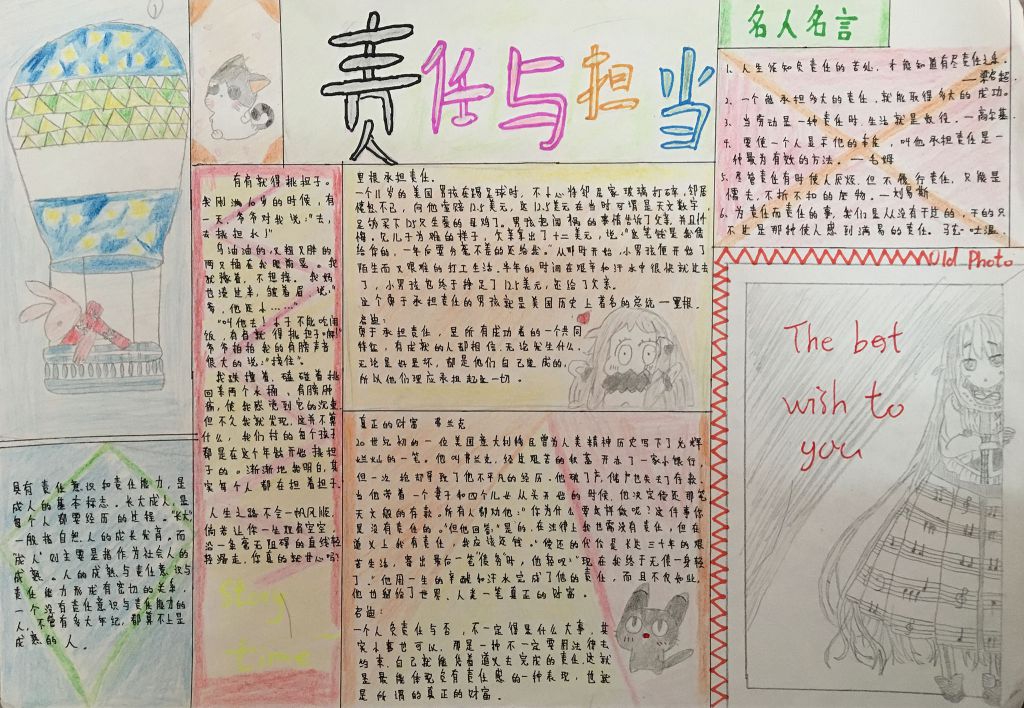 责任与担当
名人名言
1、人生须知负责任的苦处,才能知道有尽责任之乐。
——梁启超
2、一个能承担多大的责任,就能取得多大的成功。
3、当劳动是一种责任时,生活就是奴役。—高尔基
4、要使一个人显示他的本能,叫他承担责任是一
种最为有效的方法。—毛姆
5、尽管责任有时使人厌烦,但不履行责任,只能是
懦夫,不折不扣的废物。—刘易斯
6、为责任而责任的事,我们是从没有干过的,干的只
不过是那种使人感到满易的责任。马克·吐温
有肩就得挑担子。
我刚满6岁的时候,有
一天,爷爷对我说:"去,
去挑担水!"
乌油油的,又粗又胖的
两只桶在我眼前晃。我
就
不想挑。我妈
也漫过来,皱着眉,说:"
爹,他还小……"
"叫他去!小子不能吃闲
饭,有肩就得挑担子。"
爷爷拍拍我的肩膀声音
很大的说:"接住"。
我跌撞着,磕碰着挑
回来两个水桶,肩膀肿
痛,使我感觉到它的沉重。
但不久我就发现,这并不算
什么,我们村的每个孩子
都是在这个年龄开始挑担
子的。渐渐地我明白,其
实每个人都在担着担子。
人生之路不会一帆风顺,
倘若让你一生现有空空,
沿一条毫无阻碍的直线轻
轻滑走,你真的就甘心吗?
story
time
里根承担责任。
一个11岁的美国男孩在踢足球时,不小心将邻居家玻璃打碎,邻居
愤怒不已,向他索赔12.5美元,这12.5美元在当时可谓是天文数字,
足够买下125只生蛋的母鸡了。男孩把闯祸的事情告诉了父亲,并且忏
悔。见儿子为难的样子,父亲拿出了十二美元,说:"这笔钱是我借
给你的,一年后要分毫不差的还给我。"从那时开始,小男孩便开始了
陌生而又艰难的打工生活。半年的时间在艰辛和汗水中很快就过去
了,小男孩也终于挣足了12.5美元,还给了父亲。
这个勇于承担责任的男孩就是美国历史上著名的总统—里根。
启迪:
勇于承担责任,是所有成功者的一个共同
特征,有成就的人都相信,无论发生什么,
无论是好是坏,都是他们自己造成的,
所以他们理应承担起这一切。
真正的财富 弗兰克
20世纪初的一位美国意大利裔移民曾为人类精神历史写下了光辉
灿烂的一笔。他叫弗兰克,经过艰苦的积蓄开办了一家小银行,
但一次抢劫导致了他不平凡的经历。他破了产,储户也失去了存款,
当他带着一个妻子和四个儿女从头开始的时候,他决定偿还那笔
天文般的存款。所有人都劝他:"你为什么要这样做呢?这件事你
是没有责任的。"但他回答:"是的,在法律上我也需没有责任,但在
道义上我有责任,我应该还钱。"偿还的代价是长达三十年的艰
苦生活,寄出最后一笔"债务"时,他轻叹:"现在我终于无债一身轻
了。"他用一生的辛酸和汗水完成了他的责任,而且不仅如此,
他也留给了世界、人类一笔真正的财富。
启迪:
一个人负责任与否,不一定得是什么大事,其
实小事也可以,那是一种不一定要用法律去
约束,自己就能凭着道义去完成的责任,这就
是最能体现负有责任感的一种表现,也就
是所谓的真正的财富。
具有责任意识和责任能力,是
成人的基本标志。长大成人,是
每个人都要经历的过程。"长大"
一般指自然人的成长发育。而"
成人"则主要是指作为社会人的
成熟。人的成熟与责任意识与
责任能力形成有密切的关系,
一个没有责任意识与责任能力的
人,不管有多大年纪,都算不上是
成熟的人。
Old Photo
The best
wish to
you